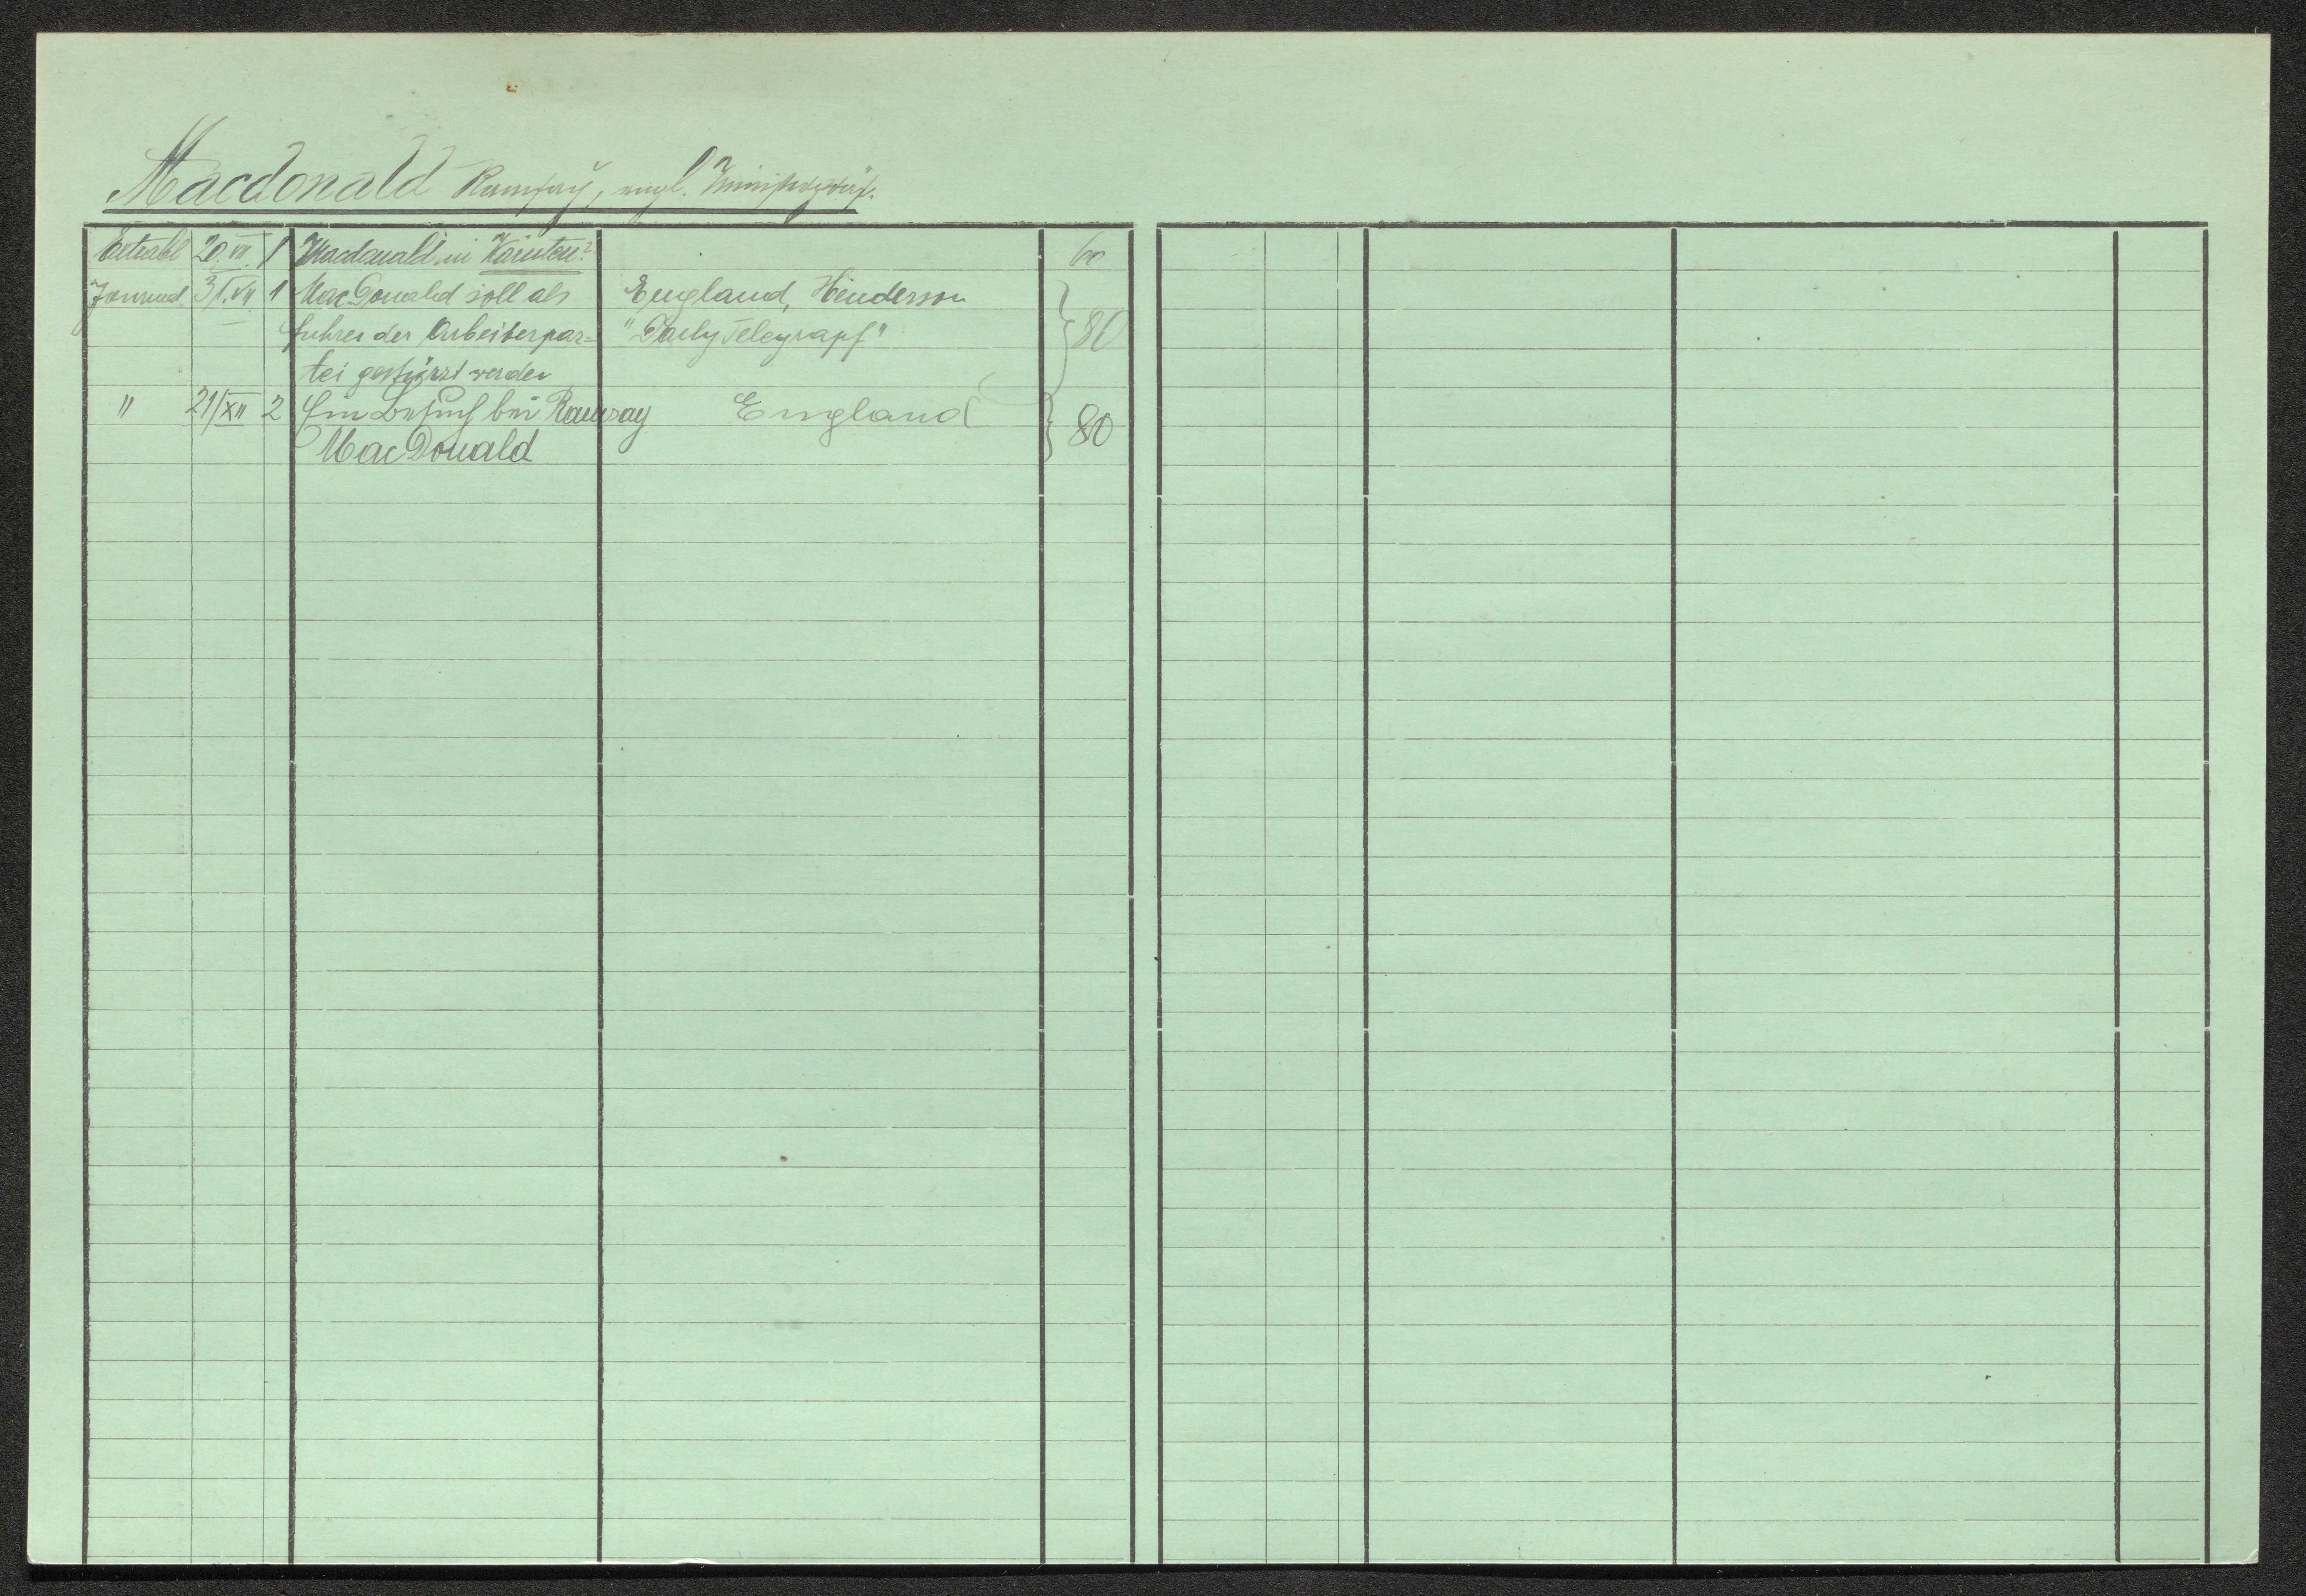 Macdonald Ramsay, engl. Ministerpräs.
Extrabl 20. VII. 1 Macdonald in Kärnten? 60
Jourund 31. VII. 1 MacDonald soll als England, Henderson
führer der Arbeiterpar= "Daily Telegrapf" 80
tei gestürzt werden
" 21/XII 2 Ein Besuch bei Ramsay England 80
MacDonald